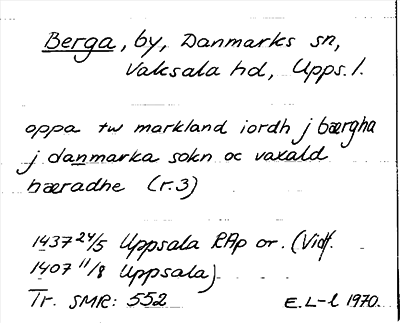 Berga, by, Danmarks sn,
Vaksala hd, Upps. l.
oppa tw markland iordh j bærgha
j danmarka sokn oc vaxald
hæradhe (r. 3)
1437 24/5 Uppsala RAp or. (Vid.
1407 11/8 Uppsala)
Tr. SMR: 552 E. L-l 1970.